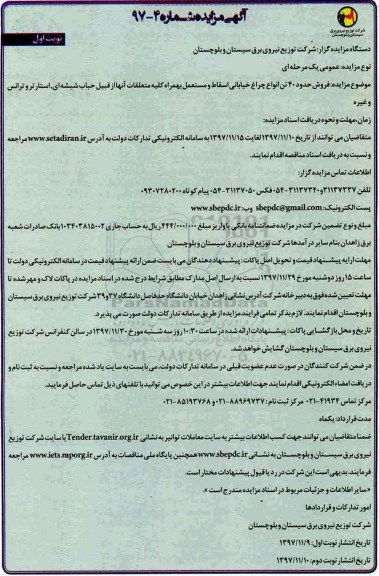 شرکت توزیع نیروی برق
سیستان و بلوچستان
آگهی مزایده شماره ۴-۹۷
نوبت اول
دستگاه مزایده گزار: شرکت توزیع نیروی برق سیستان و بلوچستان
نوع مزایده: عمومی یک مرحله ای
موضوع مزایده: فروش حدود ۴۰ تن انواع چراغ خیابانی اسقاط و مستعمل بهمراه کلیه متعلقات آنها از قبیل حباب شیشه ای، استارتر و ترانس
و غیره
زمان، مهلت و نحوه دریافت اسناد مزایده:
متقاضیان می توانند از تاریخ ۱۳۹۷/۱۱/۱۰ لغایت ۱۳۹۷/۱۱/۱۵ به سامانه الکترونیکی تدارکات دولت به آدرس www.setadiran.ir مراجعه
و نسبت به دریافت اسناد مناقصه اقدام نمایند.
اطلاعات تماس مزایده گزار:
تلفن ۳۱۱۳۷۲۳۷ و ۳۱۱۳۷۳۴۰-۰۵۴ فکس ۳۱۱۳۷۰۵۰-۰۵۴ پیام کوتاه ۰۹۳۰۷۲۸۰۲۰۰
پست الکترونیک: sbepdc@gmail.com وب: www.sbepdc.ir
مبلغ و نوع تضمین شرکت در مزایده ضمانتنامه بانکی یا واریز مبلغ ۴۴۴/۰۰۰/۰۰۰ ریال به حساب جاری ۰۱۰۳۴۰۳۸۱۵۰۰۲ بانک صادرات شعبه
برق زاهدان بنام سایر درآمدها شرکت توزیع نیروی برق سیستان و بلوچستان
مهلت ارایه پیشنهاد قیمت و تحویل اصل پاکات: پیشنهاد دهندگان می بایست ضمن ارائه پیشنهاد قیمت در سامانه الکترونیکی دولت تا
ساعت ۱۵ روز دوشنبه مورخ ۱۳۹۷/۱۱/۲۹ نسبت به ارسال اصل مدارک مطابق شرایط درج شده در اسناد مزایده در پاکات لاک و مهر شده تا
مهلت تعیین شده فوق به دبیرخانه شرکت آدرس نشانی زاهدان خیابان دانشگاه حدفاصل دانشگاه ۳۷ و ۳۹ شرکت توزیع نیروی برق سیستان
و بلوچستان اقدام نمایند. لازم بذکر تمامی فرایند مزایده از طریق سامانه تدارکات دولت صورت می پذیرد.
تاریخ و محل بازگشایی پاکات: پیشنهادات ارائه شده در ساعت ۱۰:۳۰ روز سه شنبه مورخ ۱۳۹۷/۱۱/۳۰ در سالن کنفرانس شرکت توزیع
نیروی برق سیستان و بلوچستان گشایش خواهد شد.
در ضمن شرکت کنندگان در صورت عدم عضویت قبلی در سامانه تدارکات دولت، می بایست به سایت یاد شده مراجعه و نسبت به ثبت نام و
دریافت امضاء الکترونیکی اقدام نمایند جهت اطلاعات بیشتر در این خصوص می توانید با تلفنهای ذیل تماس حاصل فرمایید.
مرکز تماس ۴۱۹۳۴-۰۲۱ مرکز ثبت نام: ۸۸۹۶۹۷۳۷-۰۲۱ و ۸۵۱۹۳۷۶۸-۰۲۱
مدت قرارداد: یکماه
ضمنا متقاضیان می توانند جهت کسب اطلاعات بیشتر به سایت معاملات توانیر به نشانی Tender.tavanir.org.ir یا سایت شرکت توزیع
نیروی برق سیستان و بلوچستان به نشانی www.sbepdc.ir همچنین پایگاه ملی مناقصات به آدرس www.iets.mporg.ir مراجعه
فرمایند. بدیهی است این شرکت در رد یا قبول پیشنهادات مختار است.
«سایر اطلاعات و جزئیات مربوط در اسناد مزایده مندرج است».
امور تدارکات و قراردادها
شرکت توزیع نیروی برق سیستان و بلوچستان
تاریخ انتشار نوبت اول: ۱۳۹۷/۱۱/۹
تاریخ انتشار نوبت دوم: ۱۳۹۷/۱۱/۱۰